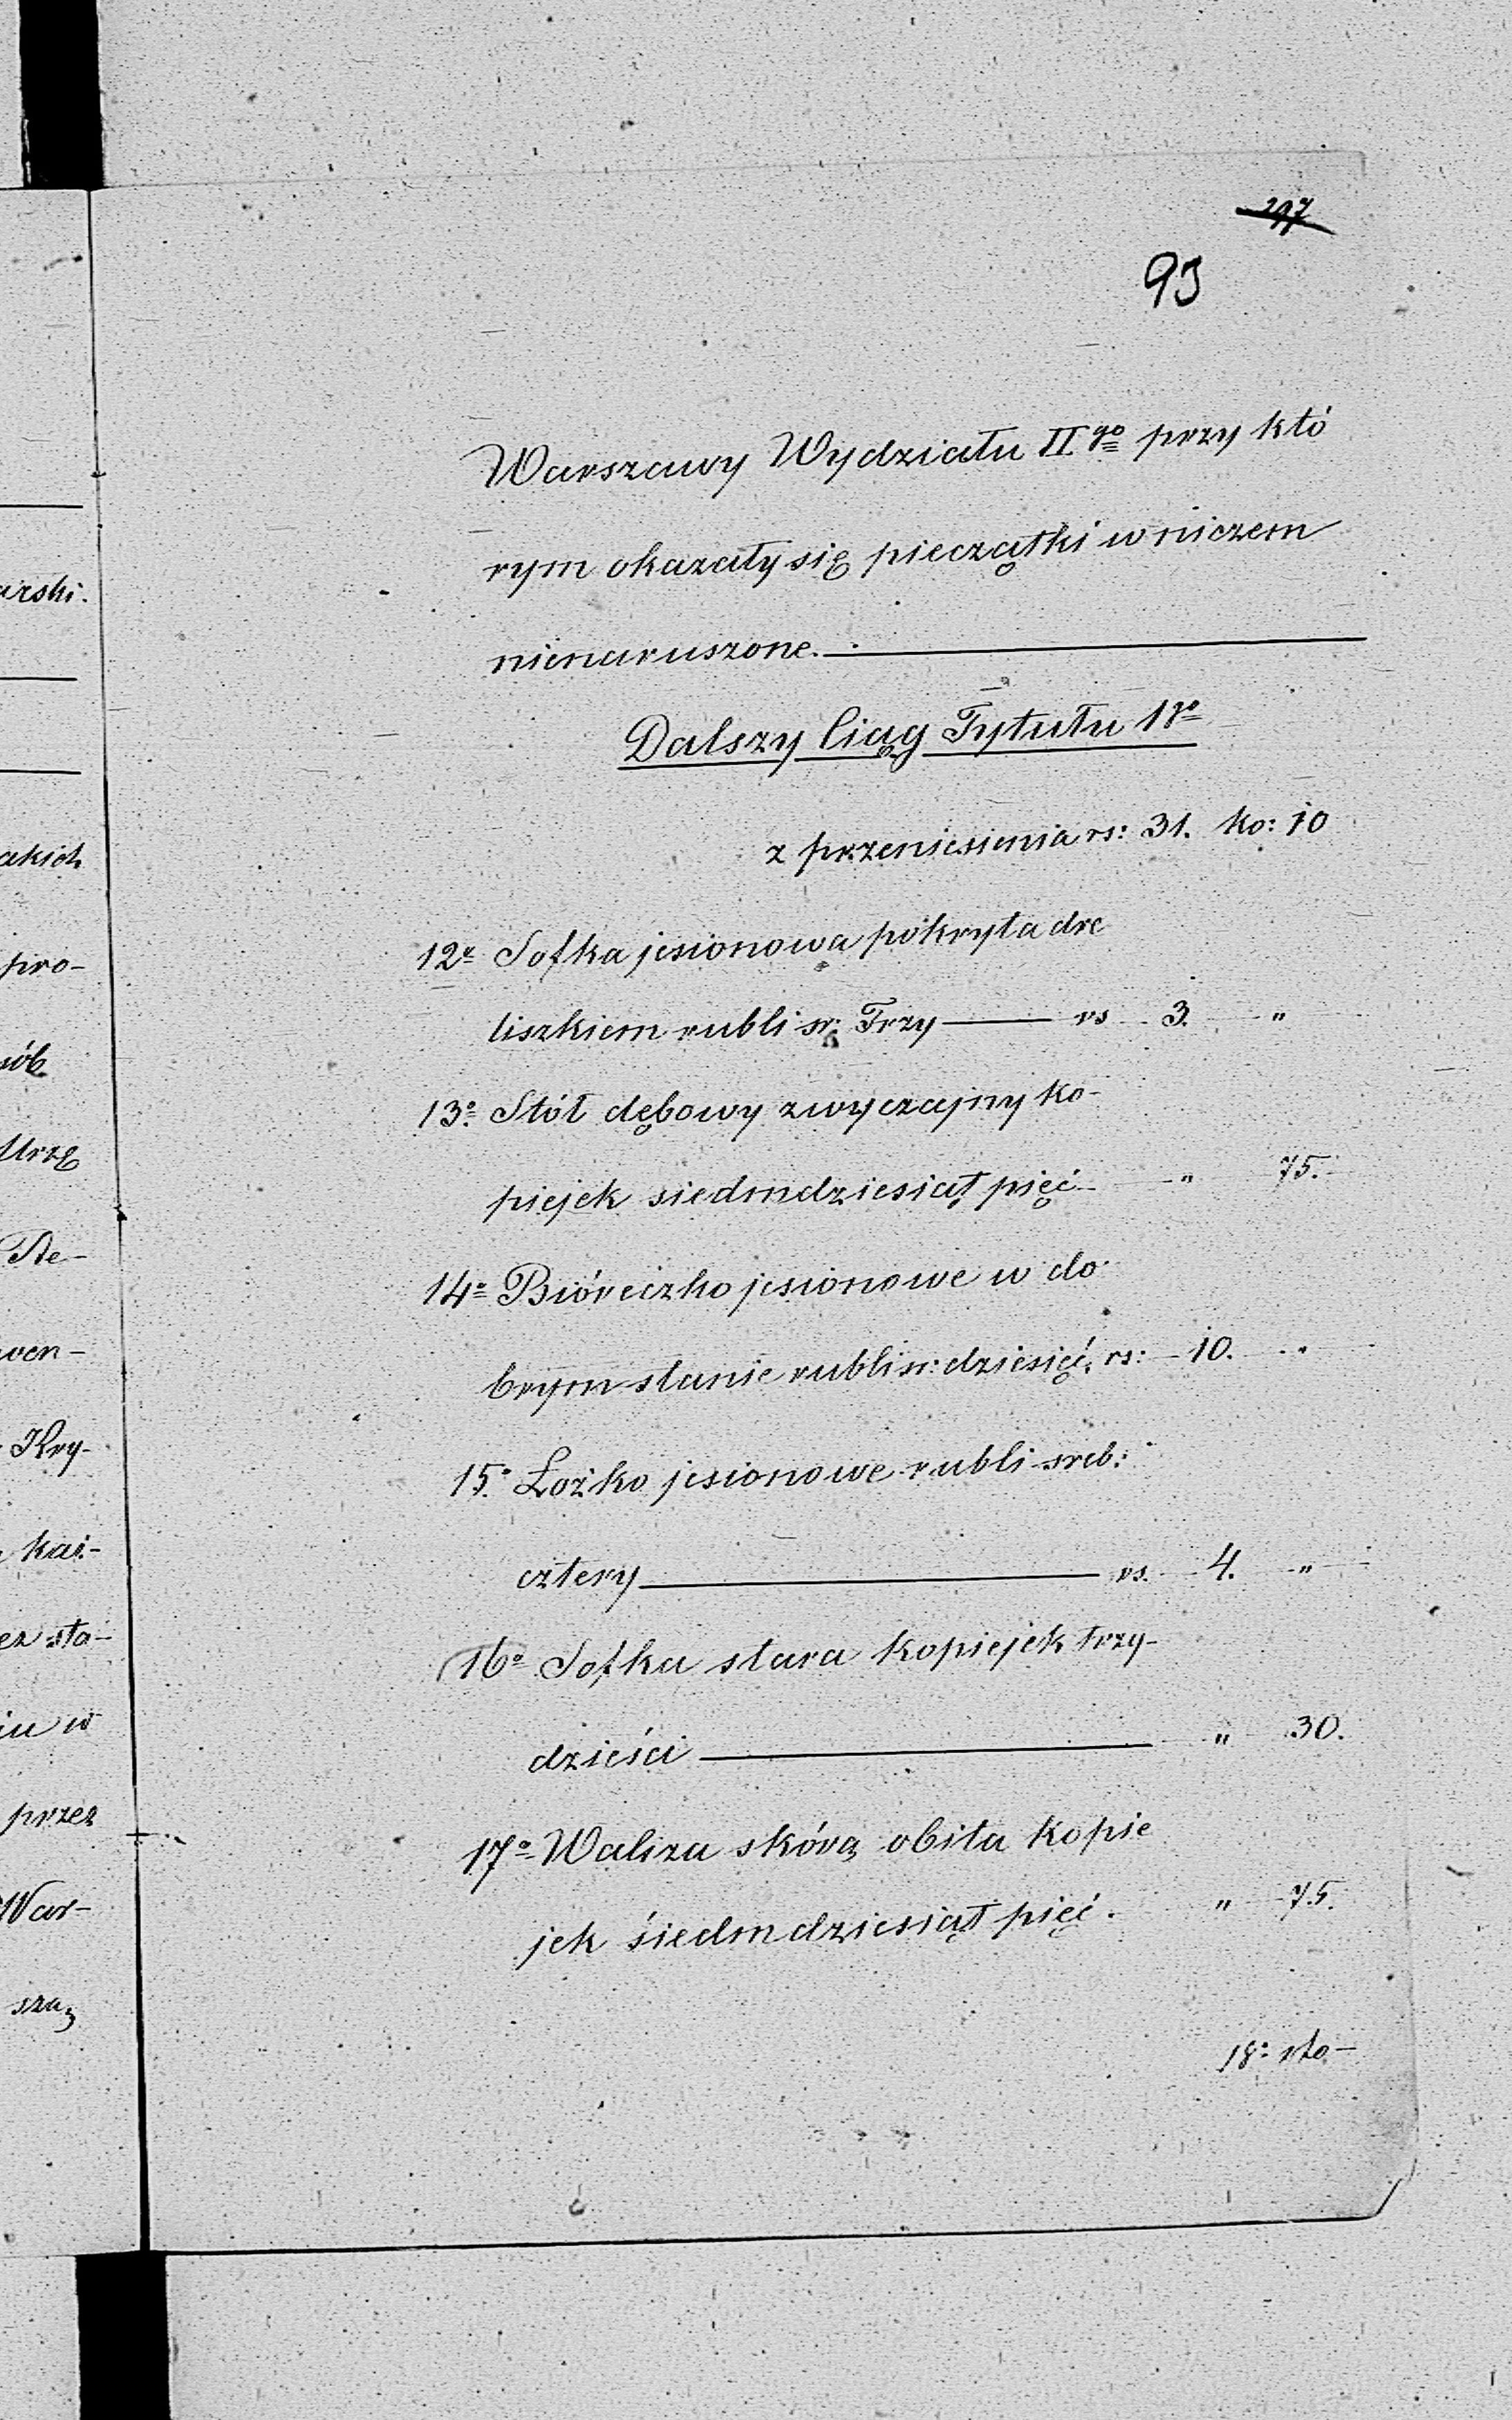 93
Warszawy Wydziału II go przy któ
rym okazały się pieczątki w niczem
nienaruszone.
Dalszy Ciąg Tytułu 1go
z przeniesienia rs: 31. ko: 10
12o Sofka jesionowa pokryta dre
liszkiem rubli sr: Trzy rs 3. "
13o Stół dębowy zwyczajny ko-
piejek siedmdziesiąt pięć " 75.
14o Bióreczko jesionowe w do
brym stanie rubli sr: dziesięć, rs: 10. "
15o Łożko jesionowe rubli sreb:
cztery rs. 4. "
16o Sofka stara kopiejek trzy-
dzieści " 30.
17o Waliza skórą obita kopie
jek śiedmdziesiąt pięć. " 75.
18: sto-
arski.
akich
pro-
sób
Urzę
wen-
Kry-
przez
War-
szą